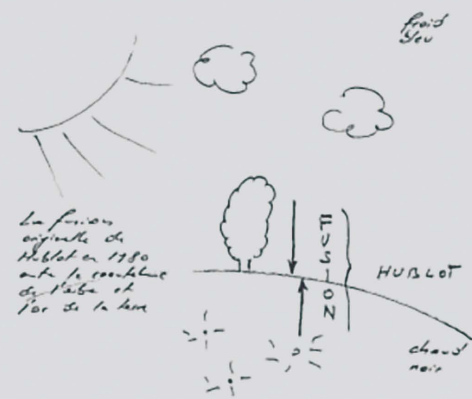 froid
bleu
La fusion
originelle de
Hublot en 1980
entre le caoutchouc
de l'arbre et
l'or de la terre
FUSION
HUBLOT
chaud
noir